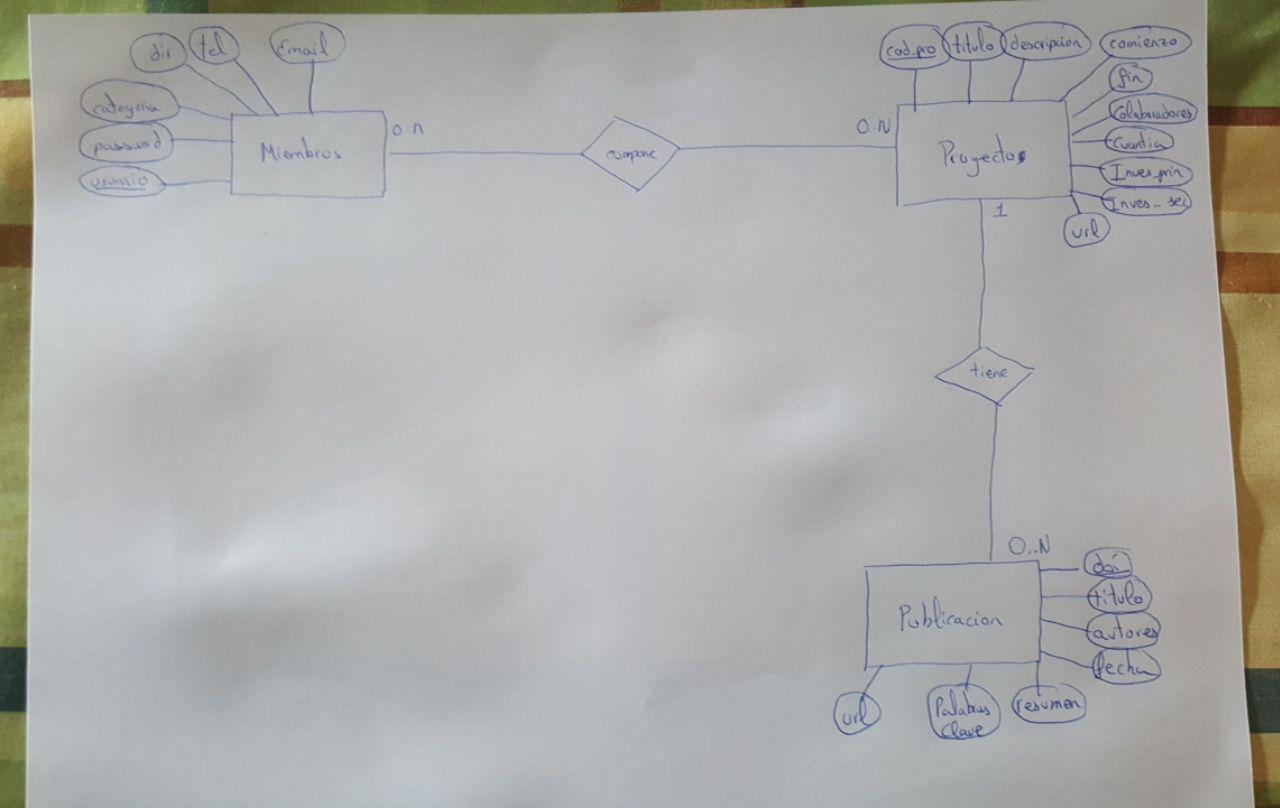 dir
tel
Email
categoria
password
usuario
Miembros
0..n
compone
0..N
cod_pro
titulo
descripcion
comienzo
fin
Colaboradores
Cuantia
Inves_prin
Inves_sec
url
Proyectos
1
tiene
0..N
Publicacion
doi
titulo
autores
fecha
resumen
Palabras
clave
url